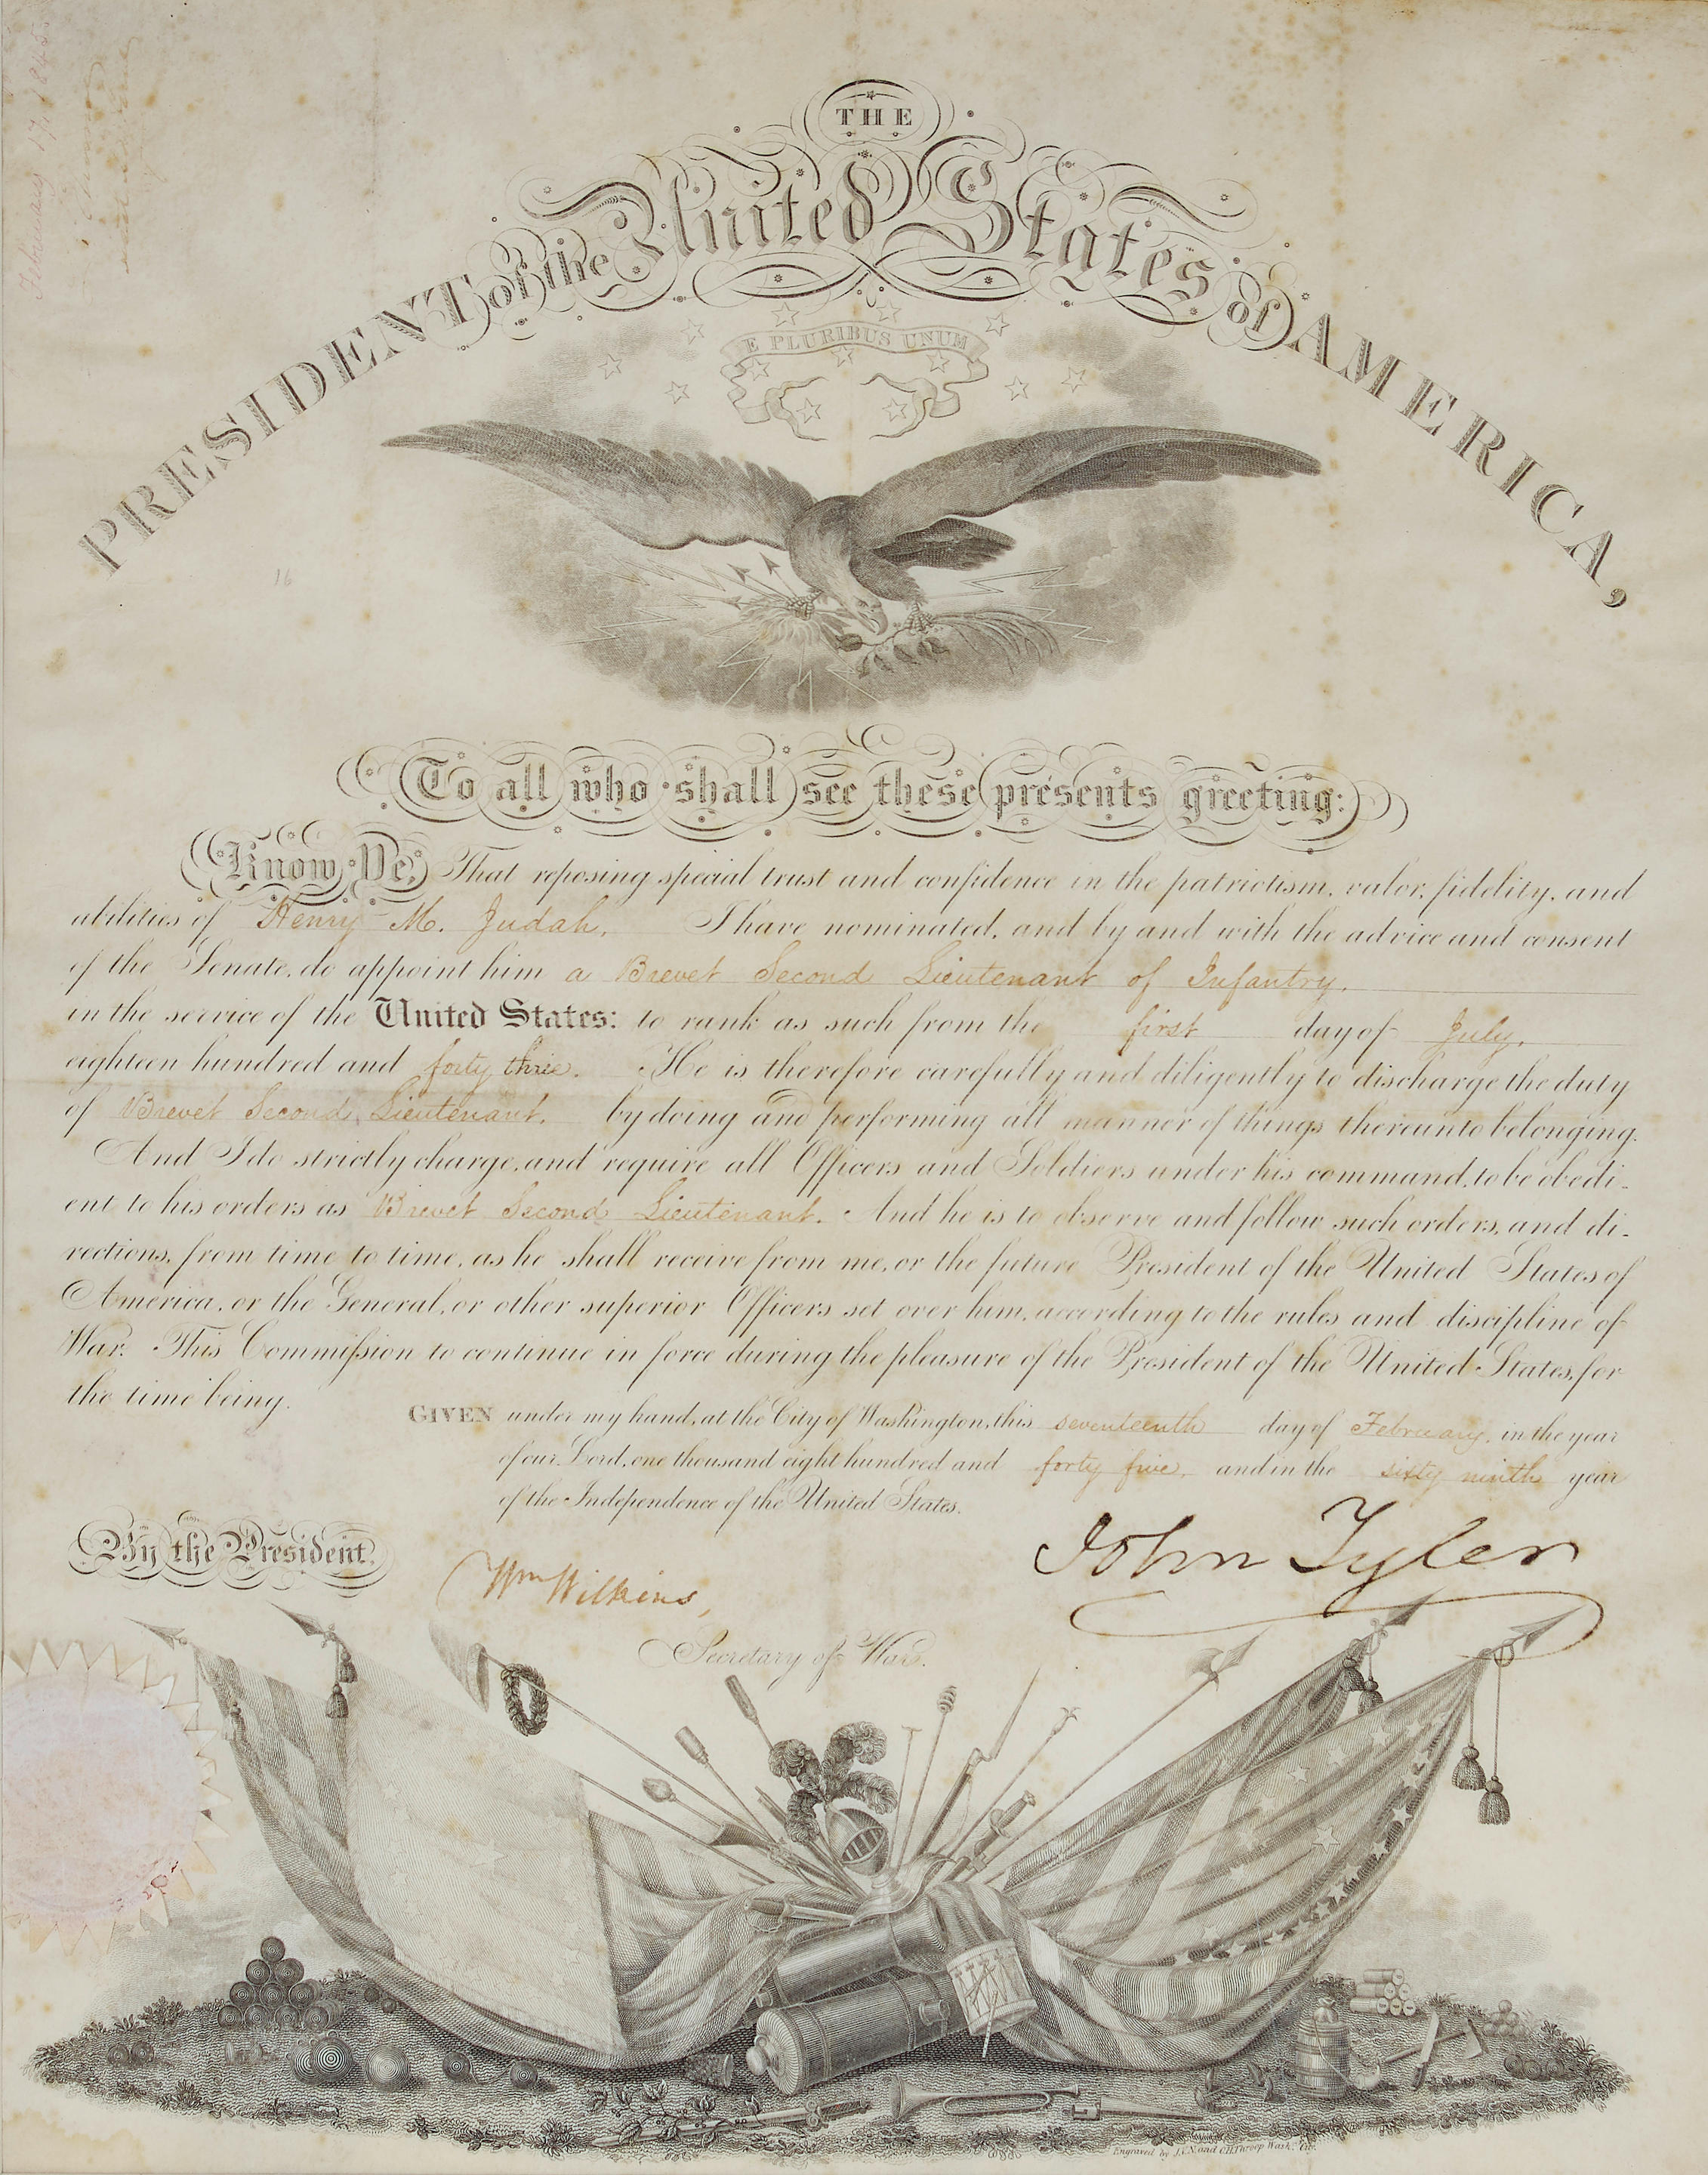 February 17, 1845
THE
PRESIDENT of the United States of AMERICA,
E PLURIBUS UNUM
16
To all who shall see these presents greeting:
Know Ye, That reposing special trust and confidence in the patriotism, valor, fidelity, and
abilities of Henry M. Judah, I have nominated, and by and with the advice and consent
of the Senate, do appoint him a Brevet Second Lieutenant of Infantry.
in the service of the United States: to rank as such from the first day of July,
eighteen hundred and forty three. He is therefore carefully and diligently to discharge the duty
of Brevet Second Lieutenant, by doing and performing all manner of things thereunto belonging.
And I do strictly charge, and require all Officers and Soldiers under his command, to be obedi-
ent to his orders as Brevet Second Lieutenant. And he is to observe and follow such orders, and di-
rections, from time to time, as he shall receive from me, or the future President of the United States of
America, or the General, or other superior Officers set over him, according to the rules and discipline of
War. This Commission to continue in force during the pleasure of the President of the United States, for
the time being.
GIVEN under my hand, at the City of Washington, this seventeenth day of February, in the year
of our Lord, one thousand eight hundred and forty five, and in the sixty ninth year
of the Independence of the United States.
By the President.
John Tyler
Wm Wilkins,
Secretary of War.
Engraved by J.V.N. and O.H. Throop Wash. City